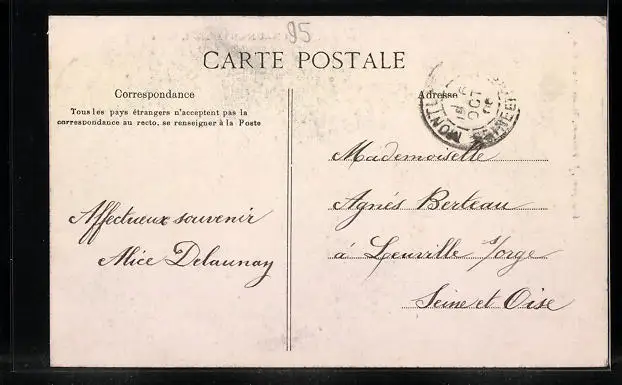 95
CARTE POSTALE
Correspondance
Tous les pays étrangers n'acceptent pas la
correspondance au recto, se renseigner à la Poste
Affectueux souvenir
Alice Delaunay
Adresse
OCT
Mademoiselle
Agnès Berteau
à Leuville s/orge
Seine et Oise